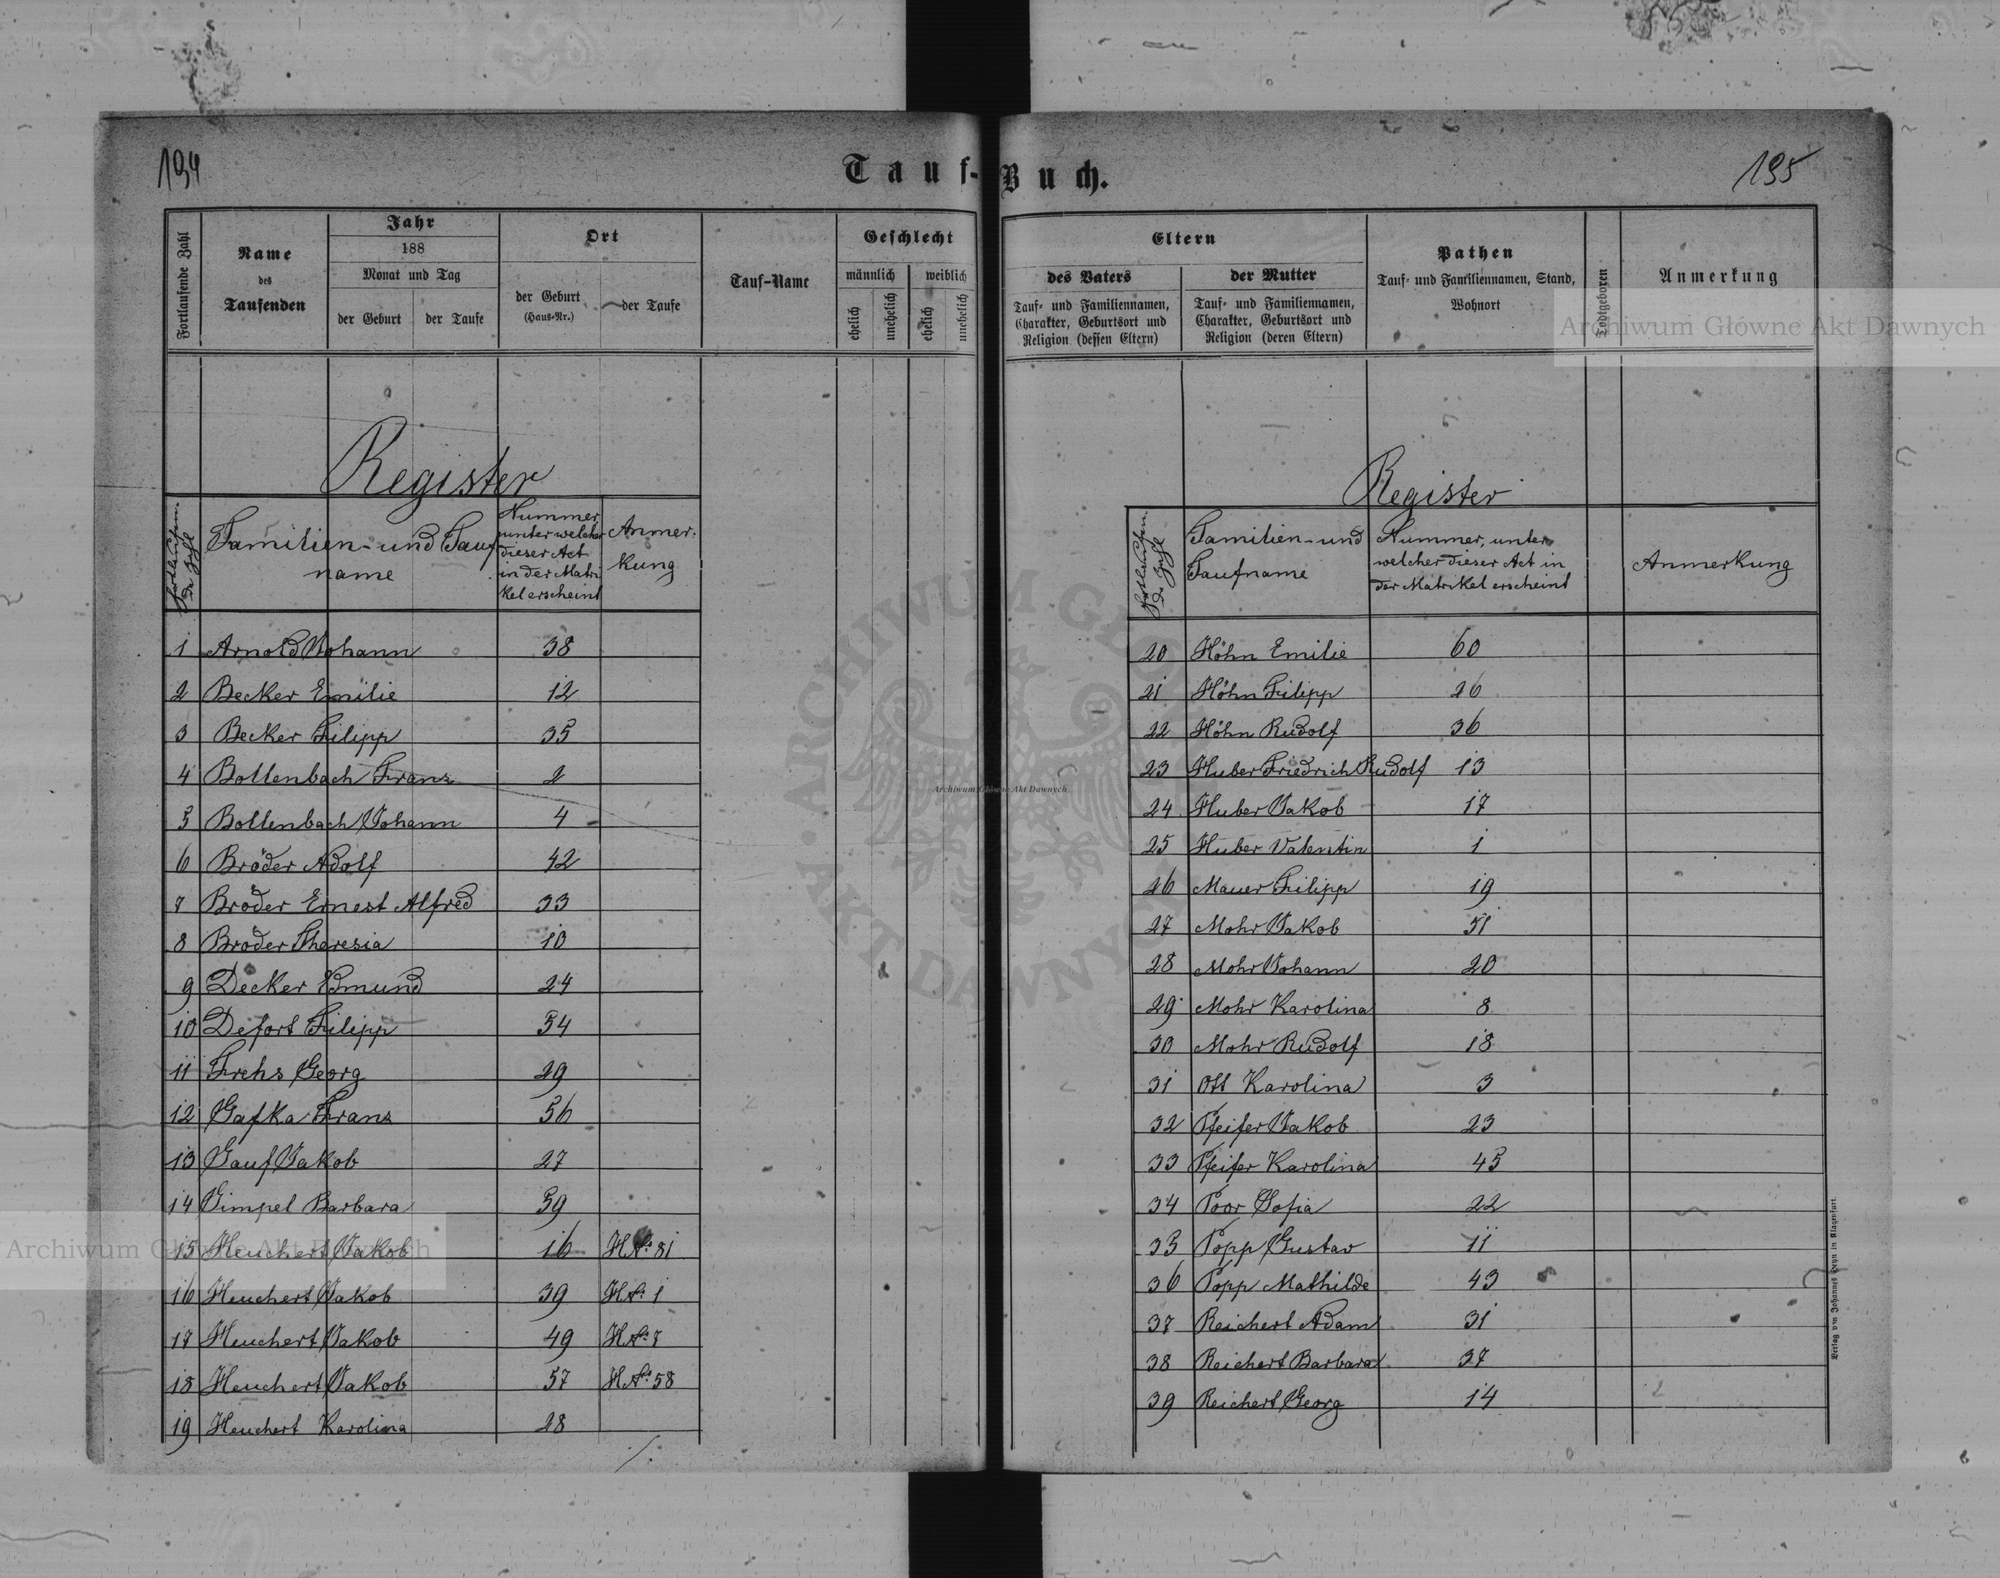 194
Tauf-Buch.
195
Fortlaufende Zahl
Name
des
Taufenden
Jahr
188
Monat und Tag
der Geburt
der Taufe
Ort
der Geburt
(Haus-Nr.)
der Taufe
Tauf-Name
Geschlecht
männlich
weiblich
ehelich
unehelich
ehelich
unehelich
Register
Fortlaufen-
de Zahl
Familien- und Tauf-
name
Nummer,
unter welcher
dieser Act
in der Matri
kel erscheint
Anmer-
kung
1 Arnold Johann 38
2 Becker Emilie 12
3 Becker Filipp 35
4 Bollenbach Franz 2
5 Bollenbach Johann 4
6 Bröder Adolf 42
7 Bröder Ernest Alfred 33
8 Bröder Theresia 10
9 Decker Edmund 24
10 Defort Filipp 54
11 Frehs Georg 29
12 Gafka Franz 56
13 Gauf Jakob 27
14 Gimpel Barbara 59
15 Heuchert Jakob 16 HNo: 81
16 Heuchert Jakob 39 HNo: 1
17 Heuchert Jakob 49 HNo: 7
18 Heuchert Jakob 57 HNo: 58
19 Heuchert Karolina 28
Eltern
des Vaters
Tauf- und Familiennamen,
Charakter, Geburtsort und
Religion (dessen Eltern)
der Mutter
Tauf- und Familiennamen,
Charakter, Geburtsort und
Religion (deren Eltern)
Pathen
Tauf- und Familiennamen, Stand,
Wohnort
Todtgeboren
Anmerkung
Register
Fortlaufen-
de Zahl
Familien- und
Taufname
Nummer, unter
welcher dieser Act in
der Matrikel erscheint
Anmerkung
20 Höhn Emilie 60
21 Höhn Filipp 26
22 Höhn Rudolf 36
23 Huber Friedrich Rudolf 13
24 Huber Jakob 17
25 Huber Valentin 1
26 Mauer Filipp 19
27 Mohr Jakob 51
28 Mohr Johann 20
29 Mohr Karolina 8
30 Mohr Rudolf 18
31 Ott Karolina 3
32 Pfeifer Jakob 23
33 Pfeifer Karolina 45
34 Poor Sofia 22
35 Popp Gustav 11
36 Popp Mathilde 43
37 Reichert Adam 31
38 Reichert Barbara 37
39 Reichert Georg 14
Verlag von Johannes Heyn in Klagenfurt.
Archiwum Główne Akt Dawnych
Archiwum Główne Akt Dawnych
Archiwum Główne Akt Dawnych
ARCHIWUM GŁÓWNE · AKT DAWNYCH ·